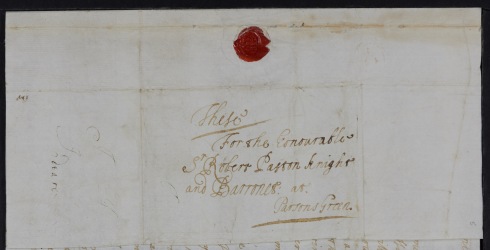 These
For the honourable
Sr Robert Paston Knight
and Barronet at
Parsons Green.